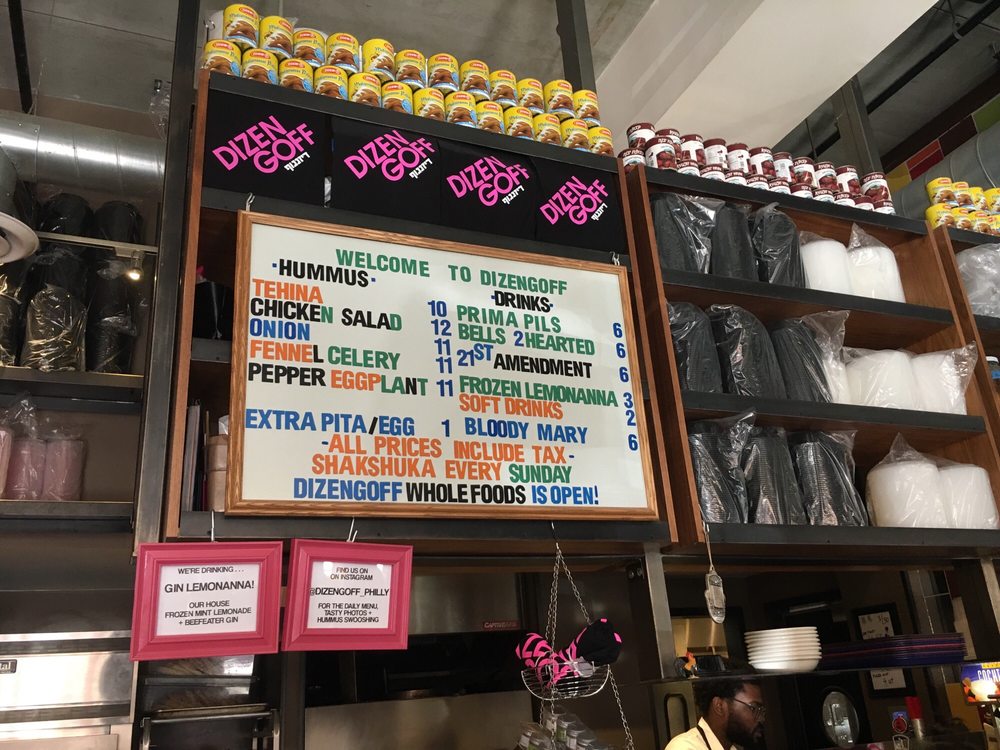 DIZEN
GOFF
דיזנגוף
DIZEN
GOFF
דיזנגוף
DIZEN
GOFF
דיזנגוף
DIZEN
GOFF
דיזנגוף
WELCOME TO DIZENGOFF
·HUMMUS·
TEHINA 10
CHICKEN SALAD 12
ONION 11
FENNEL CELERY 11
PEPPER EGGPLANT 11
EXTRA PITA/EGG 1
·DRINKS·
PRIMA PILS 6
BELLS 2 HEARTED 6
21ST AMENDMENT 6
FROZEN LEMONANNA 3
SOFT DRINKS 2
BLOODY MARY 6
-ALL PRICES INCLUDE TAX-
SHAKSHUKA EVERY SUNDAY
DIZENGOFF WHOLE FOODS IS OPEN!
WE'RE DRINKING . . .
GIN LEMONANNA!
OUR HOUSE
FROZEN MINT LEMONADE
+ BEEFEATER GIN
FIND US ON
ON INSTAGRAM
@DIZENGOFF_PHILLY
FOR THE DAILY MENU,
TASTY PHOTOS +
HUMMUS SWOOSHING